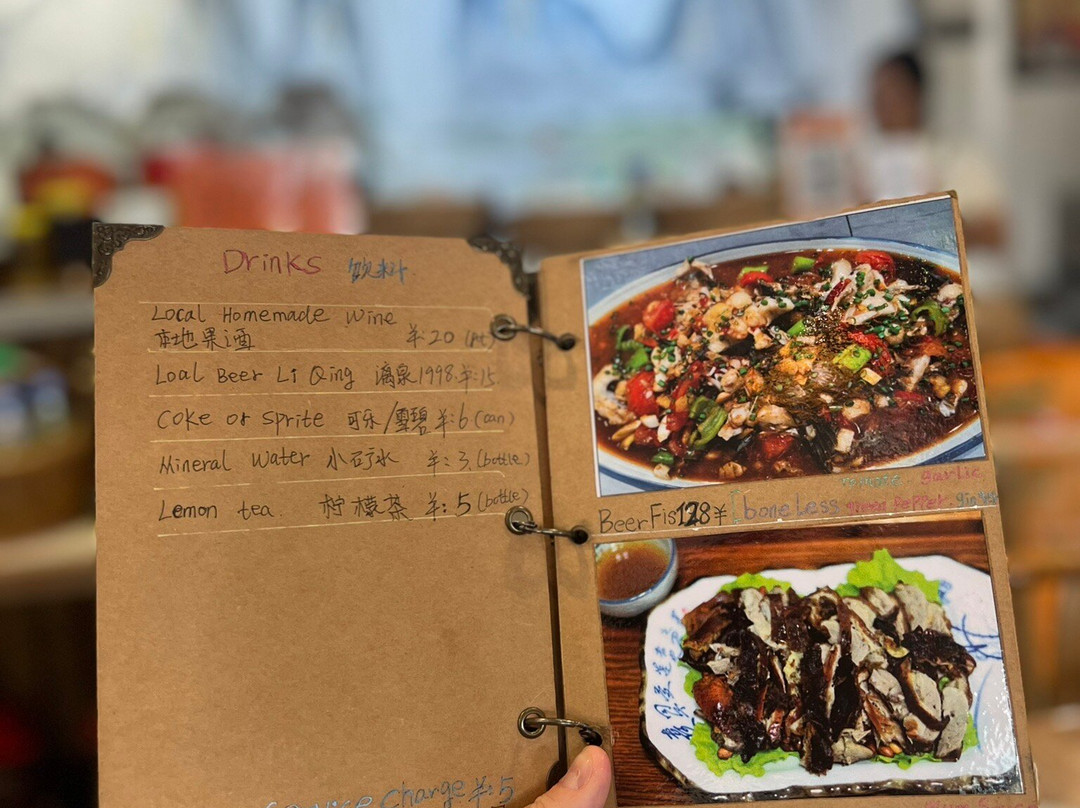 Drinks 饮料
Local Homemade Wine
本地果酒 ¥20 (pt)
Loal Beer Li Qing 漓泉1998 ¥:15
Coke or sprite 可乐/雪碧 ¥:6 (can)
Mineral Water 小矿水 ¥:3 (bottle)
Lemon tea. 柠檬茶 ¥:5 (bottle)
Charge ¥:5
garlic
BeerFis128¥ boneLess green Pepper